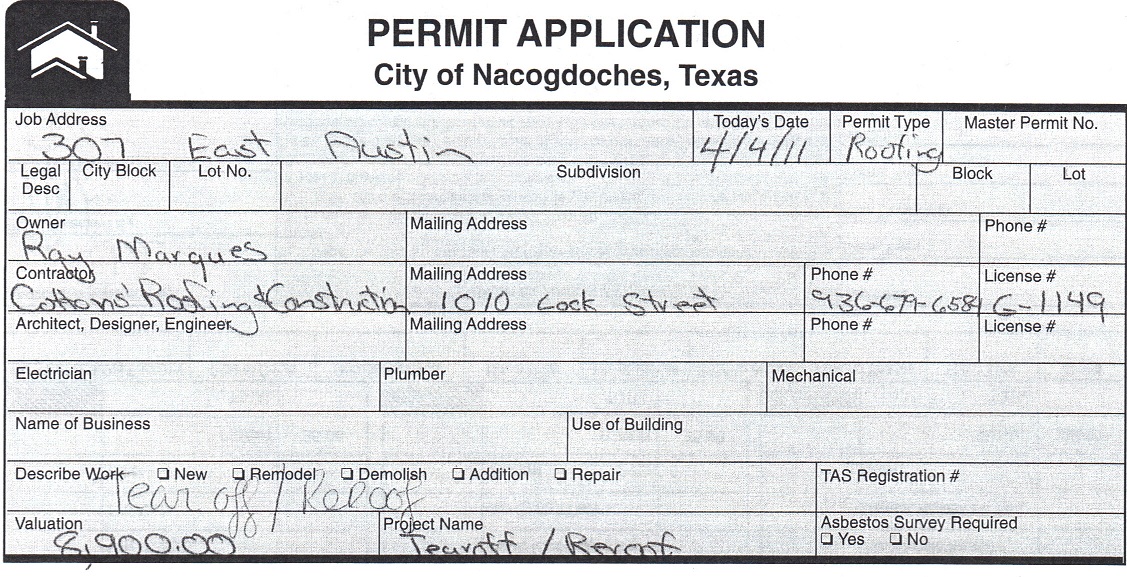 PERMIT APPLICATION
City of Nacogdoches, Texas
Job Address Today's Date Permit Type Master Permit No.
307 East Austin 4/4/11 Roofing
Legal Desc City Block Lot No. Subdivision Block Lot
Owner Mailing Address Phone #
Ray Marques
Contractor Mailing Address Phone # License #
Cottons' Roofing & Constrution 1010 Lock Street 936-679-6584 G-1149
Architect, Designer, Engineer Mailing Address Phone # License #
Electrician Plumber Mechanical
Name of Business Use of Building
Describe Work ❑ New ❑ Remodel ❑ Demolish ❑ Addition ❑ Repair TAS Registration #
Tear off / Reroof
Valuation Project Name Asbestos Survey Required
8,900.00 Tearoff / Reroof ❑ Yes ❑ No